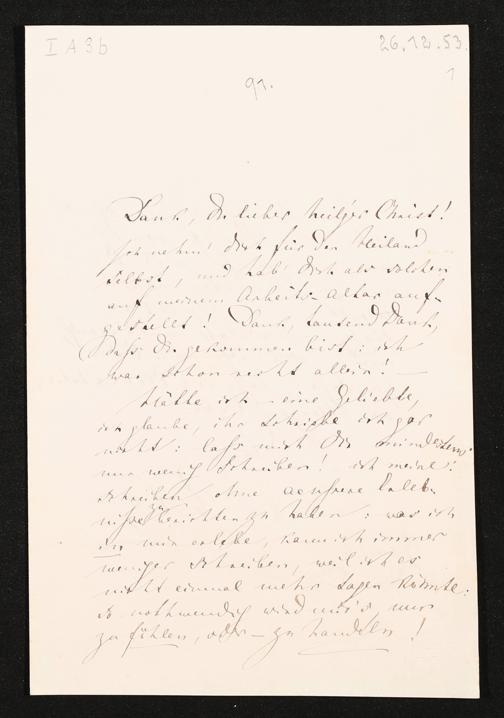 I A 3b
26.12.53.
1
91.
Dank, du lieber heil'ger Christ!
Ich nehm' dich für den Heiland
selbst, und hab' dich als solchen
auf meinem Arbeits-Altar auf-
gestellt! Dank, tausend Dank,
dass du gekommen bist: ich
war schon recht allein! —
Hätte ich eine Geliebte,
ich glaube, ihr schriebe ich gar
nicht: lass mich dir mindestens
nur wenig schreiben! ich meine:
schreiben ohne aeussere Erleb-
nisse berichten zu haben: was ich
in mir erlebe, kann ich immer
weniger schreiben, weil ich es
nicht einmal mehr sagen könnte:
so nothwendig wird mir's, nur
zu fühlen, oder — zu handeln!